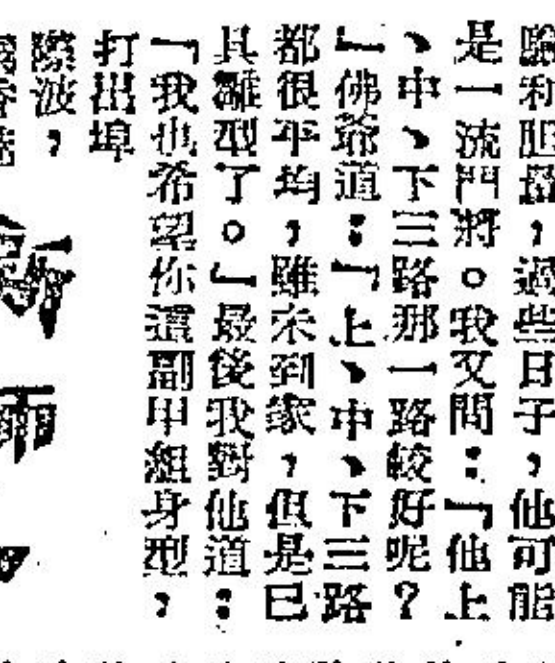 驗和胆量，過些日子，他可能
是一流門將。我又問：「他上
、中、下三路那一路較好呢？
」佛爺道：「上、中、下三路
都很平均，雖未到家，但是已
具雛型了。」最後我對他道：
「我也希望你這副甲組身型，
打出埠
際波，